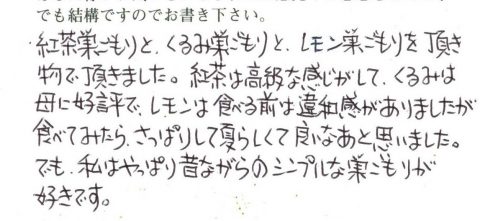 でも結構ですのでお書き下さい。
紅茶巣ごもりと、くるみ巣ごもりと、レモン巣ごもりを頂き
物で頂きました。紅茶は高級な感じがして、くるみは
母に好評で、レモンは食べる前は違和感がありましたが
食べてみたら、さっぱりして夏らしくて良いなあと思いました。
でも、私はやっぱり昔ながらのシンプルな巣ごもりが
好きです。